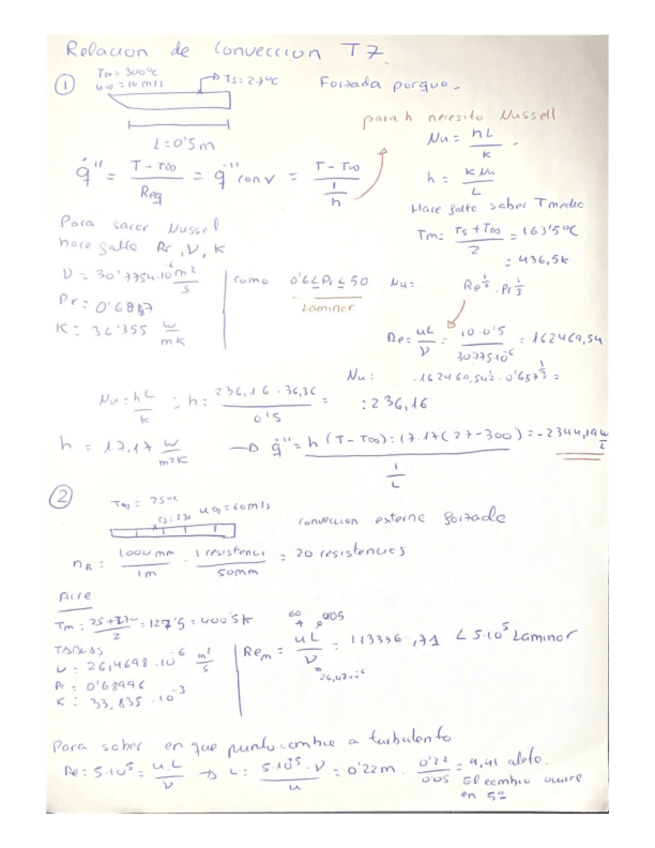 Relacion de Conveccion T7
① T∞ = 300ºC
u∞ = 10 m/s
Ts = 27ºC
Forzada porque.
L = 0'5 m
para h necesito Nussell
Nu = hL/K ;
q̇'' = (T - T∞)/Req = q̇'' conv = (T - T∞)/(1/h)
h = K Nu/L
Hace falta saber T media
Para sacar Nussel
hace falta Pr, ν, K
Tm: (Ts + T∞)/2 = 163'5ºC
= 436,5k
ν = 30'7754·10⁻⁶ m²/s
Pr: 0'6867
K: 36'355 w/mK
como 0'6 ≤ Pr ≤ 50
Laminar
Nu: Re^½ · Pr^⅓
Re = uL/ν = 10·0'5/30'775·10⁻⁶ = 162469,54
Nu: ·162469,54^½ · 0'6873^⅓ =
: 236,16
Nu = hL/k ; h = 236,16 · 36,36/0'5 =
h = 17,17 w/m²K → q̇'' = h(T - T∞) : 17.17(27 - 300) = -2344,19
1/L
② T∞ = 25ºC
u∞ = 60 m/s
Ts = 230
conveccion externa forzada
nR = 1000 mm/1m · 1 resistenci/50mm = 20 resistencias
Aire
Tm : (25 + 230)/2 = 127'5 = 400'5k
Tablas
ν = 26,4698 · 10⁻⁶ m²/s
Pr = 0'68996
K : 33,835 · 10⁻³
60 0,05
Rem = uL/ν = 113336,71 < 5·10⁵ Laminar
26,47·10⁻⁶
Para saber en que punto cambie a turbulento
Re = 5·10⁵ = u·L/ν → L = 5·10⁵·ν/u = 0'22m. 0'22/0'05 = 4,41 aleta.
El cambio ocurre
en 5º